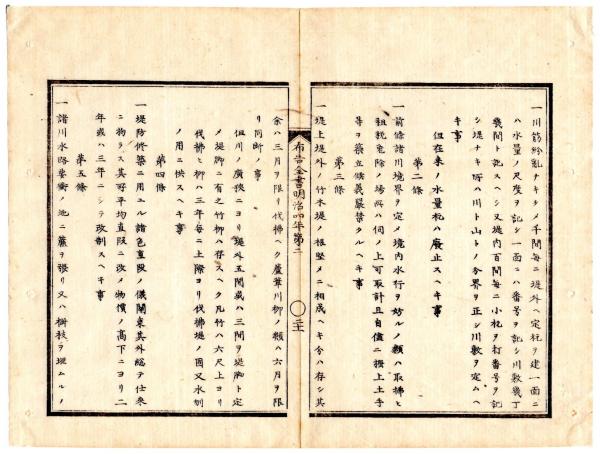 一川筋紛亂ナキタメ千間毎ニ堤外ヘ定杭ヲ建一面ニ
ハ水量ノ尺度ヲ記シ一面ニハ番號ヲ記シ川敷幾丁
幾間ト記スヘシ又堤内百間毎ニ小杭ヲ打番號ヲ記
シ堤ナキ所ハ川ト山トノ分界ヲ正シ川敷ヲ定ムヘ
キ事
但在来ノ水量杭ハ廢止スヘキ事
第二條
一前條諸川境界ヲ定メ境内水行ヲ妨ルノ類ハ取拂ヒ
租税免除ノ場所ハ伺ノ上可取計且自儘ニ掻上土手
等ヲ築立候義嚴禁タルヘキ事
第三條
一堤上堤外ノ竹木堤ノ根堅メニ相成ヘキ分ハ存シ其
布告全書明治四年第二
余ハ三月ヲ限リ伐拂ヘク蘆葦川柳ノ類ハ六月ヲ限
リ同断ノ事
但川ノ廣狹ニヨリ堤外五間或ハ三間ヲ堤脚ト定
メ堤脚ニ有之竹柳ハ存スヘク凡竹ハ六尺上ヨリ
伐拂ヒ柳ハ三年毎ニ上際ヨリ伐拂堤ノ固又水刎
ノ用ニ供スヘキ事
第四條
一堤防修築ニ用ユル諸色直段ノ儀関東其外総テ仕来
ニ物ラス其所平均直段ニ改メ物價ノ高下ニヨリ二
年或ハ三年ニシテ改制スヘキ事
第五條
一諸川水路要衝ノ地ニ簗ヲ張リ又ハ柵杙ヲ堰ムルノ